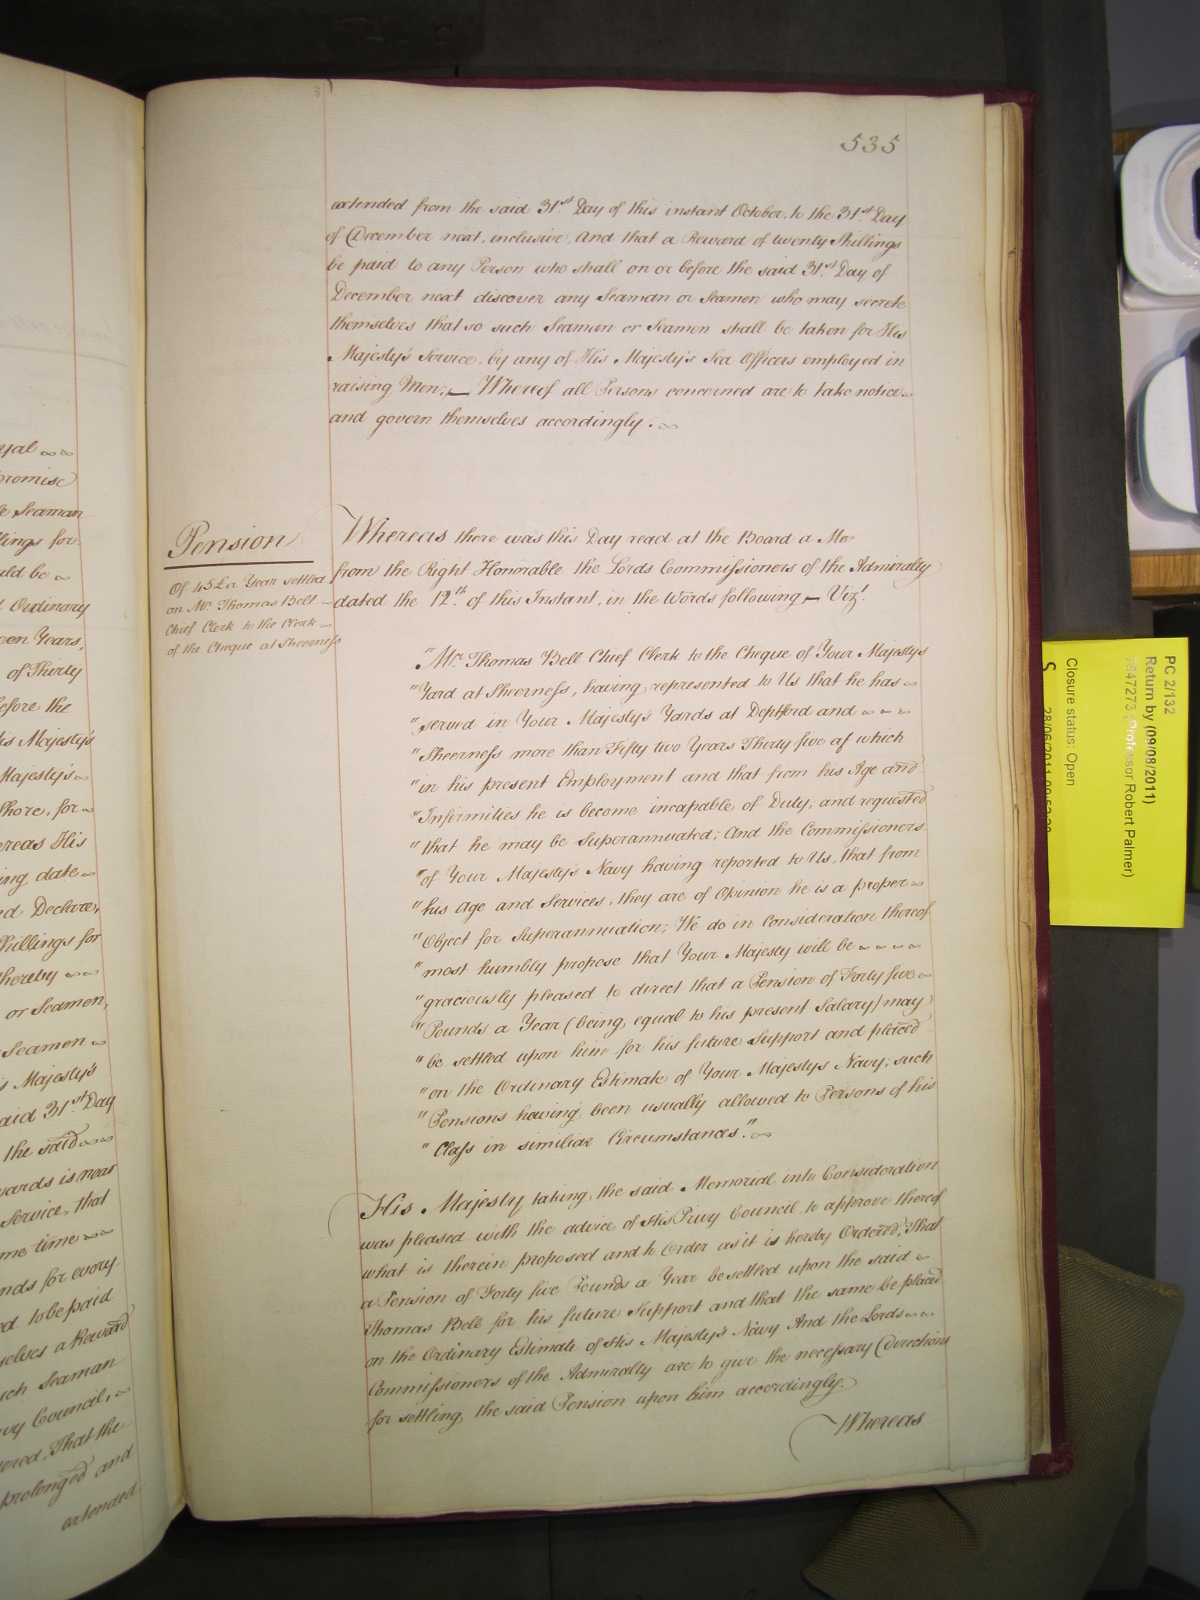 535
extended from the said 31st Day of this instant October, to the 31st Day
of December next, inclusive, And that a Reward of twenty Shillings
be paid to any Person who shall on or before the said 31st Day of
December next discover any Seaman or Seamen who may secrete
themselves that so such Seaman or Seamen shall be taken for His
Majesty's Service, by any of His Majesty's Sea Officers employed in
raising Men; — Whereof all Persons concerned are to take notice
and govern themselves accordingly.
Pension
Of 45£ a Year settled
on Mr. Thomas Bell
Chief Clerk to the Clerk
of the Cheque at Sheerness
Whereas there was this Day read at the Board a Mem
from the Right Honorable the Lords Commissioners of the Admiralty
dated the 12th of this Instant, in the Words following, — Vizt.
"Mr. Thomas Bell Chief Clerk to the Cheque of Your Majesty's
"Yard at Sheerness, having represented to Us that he has
"served in Your Majesty's Yards at Deptford and
"Sheerness more than Fifty two Years Thirty five of which
"in his present Employment and that from his Age and
"Infirmities he is become incapable of Duty, and requested
"that he may be Superannuated; And the Commissioners
"of Your Majesty's Navy having reported to Us, that from
"his Age and Services, they are of Opinion he is a proper
"Object for Superannuation; We do in Consideration thereof
"most humbly propose that Your Majesty will be
"graciously pleased to direct that a Pension of Forty five
"Pounds a Year (being equal to his present Salary) may
"be settled upon him for his future Support and placed
"on the Ordinary Estimate of Your Majesty's Navy; such
"Pensions having been usually allowed to Persons of his
"Class in similiar Circumstances."
His Majesty taking the said Memorial into Consideration
was pleased with the advice of His Privy Council, to approve thereof
what is therein proposed and to Order as it is hereby Ordered, That
a Pension of Forty five Pounds a Year be settled upon the said
Thomas Bell for his future Support and that the same be placed
on the Ordinary Estimate of His Majesty's Navy And the Lords
Commissioners of the Admiralty are to give the necessary Directions
for settling the said Pension upon him accordingly.
Whereas
yal
promise
Seaman
lings for
uld be
Ordinary
een Years,
of Thirty
efore the
is Majesty's
Majesty's
Shore, for
ereas His
ing date
ed Declare,
Shillings for
hereby
or Seamen,
Seamen
s Majesty's
said 31st Day
the said
wards is near
Service, that
me time
nds for every
ed to be paid
selves a Reward
uch Seaman
vy Council,
ered, That the
prolonged and
extended
PC 2/132
Return by (09/08/2011)
7847273 (Professor Robert Palmer)
Closure status: Open
S